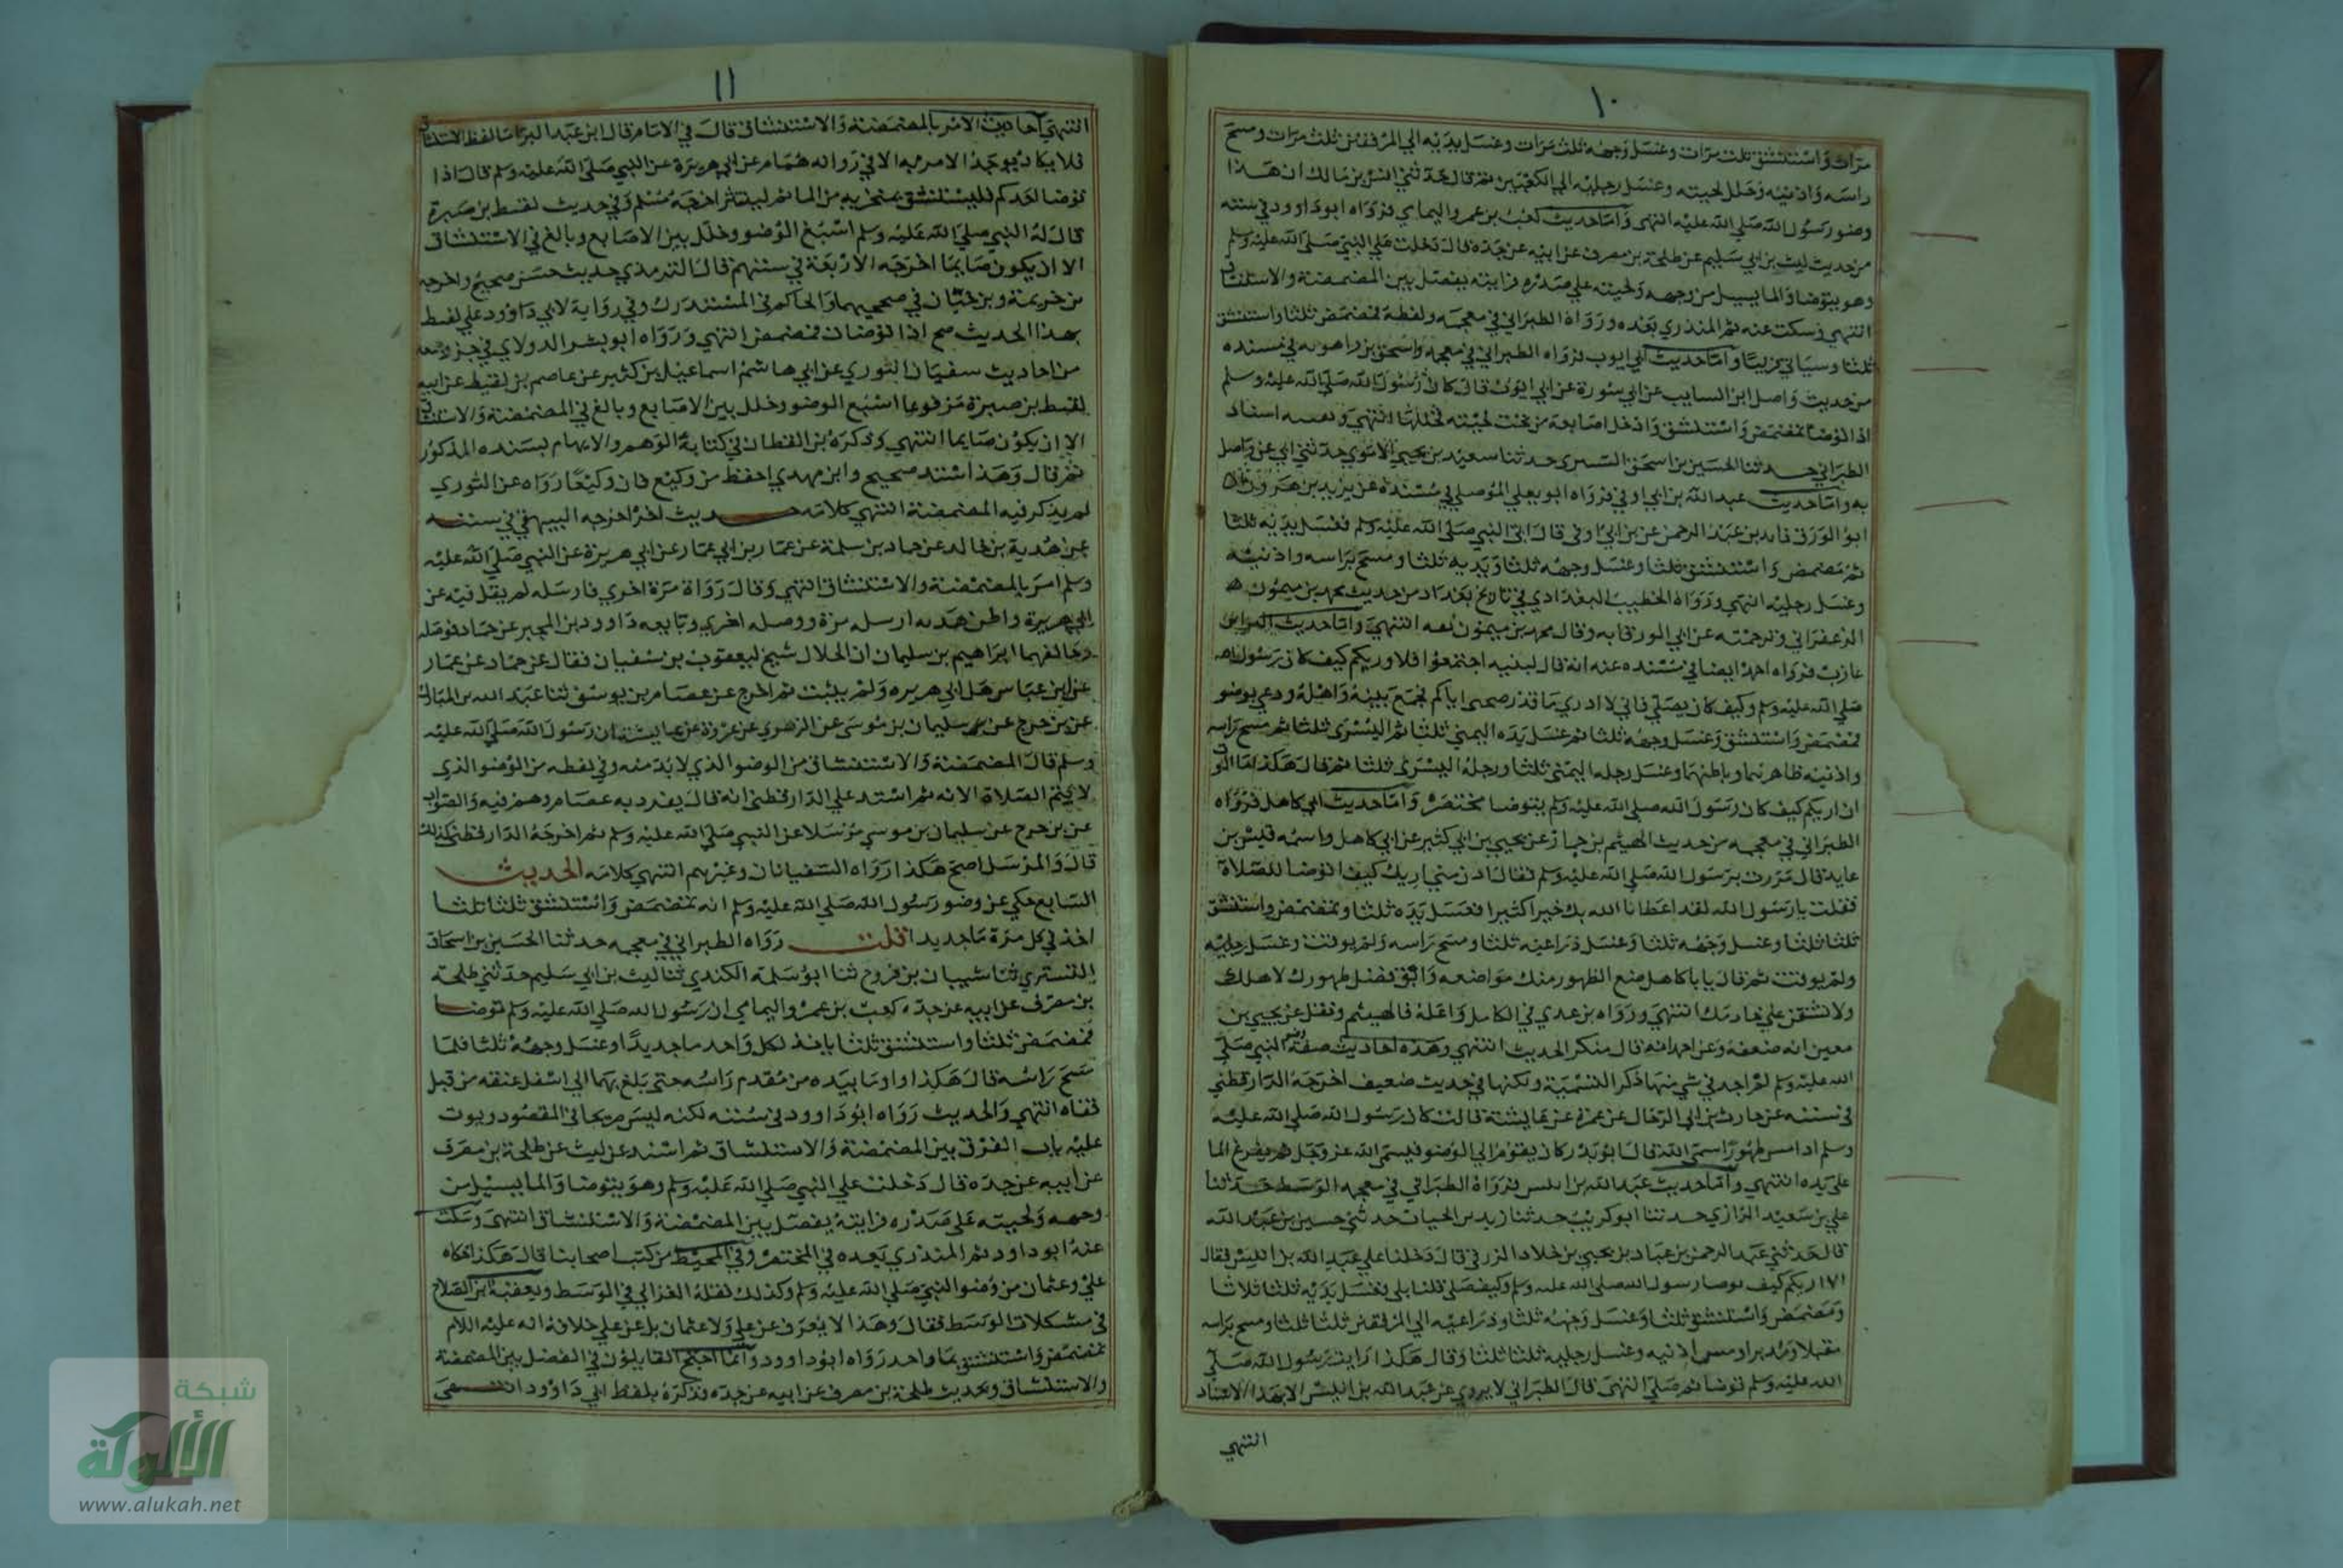 ١٠
مرات واستنشق ثلث مرات وغسل وجهه ثلث مرات وغسل يديه الي المرفقين ثلث مرات ومسح
راسه واذنيه وخلل لحيته وغسل رجليه الي الكعبين ثم قال حدثني انس بن مالك ان هذا
وضور رسول الله صلي الله عليه انتهى واما حديث كعب بن عمرو اليمامي فرواه ابو داوود في سننه
من حديث ليث بن ابي سليم عن طلحة بن مصرف عن ابيه عن جده قال دخلت علي النبي صلي الله عليه وسلم
وهو يتوضا والما يسيل من وجهه ولحيته علي صدره فرايته يفصل بين المضمضة والاستنشاق
انتهي وسكت عنه ثم المنذري بعده ورواه الطبراني في معجمه ولفظه فمضمض ثلثا واستنشق
ثلثا وسياتي قريبا واما حديث ابي ايوب فرواه الطبراني في معجمه واسحق بن راهويه في مسنده
من حديث واصل ابن السايب عن ابي سورة عن ابي ايوب قال كان رسول الله صلي الله عليه وسلم
اذا توضا تمضمض واستنشق وادخل اصابعه من تحت لحيته فخللها انتهي
الطبراني حدثنا الحسين بن اسحق التستري حدثنا سعيد بن يحيي الاموي حدثني ابي عن واصل
به واما حديث عبد الله بن ابي اوفي فرواه ابو يعلي الموصلي في مسنده عن يزيد بن هرون
ابو الورقا فايد بن عبد الرحمن عن بن ابي اوفي قال اتي النبي صلي الله عليه وسلم فغسل يديه ثلثا
ثم مضمض واستنشق ثلثا وغسل وجهه ثلثا ويديه ثلثا ومسح براسه واذنيه
وغسل رجليه انتهي ورواه الخطيب البغدادي في تاريخ بغداد من حديث محمد بن ميمون
الزعفراني وترجمته عن ابي الورقا به وقال محمد بن ميمون انتهي واما حديث البراء بن
عازب فرواه احمد ايضا في مسنده عنه انه قال لبنيه اجتمعوا فلا وريكم كيف كان رسول الله
صلي الله عليه وسلم وكيف كان يصلي فاني لا ادري ما قدر صحبتي اياكم فجمع بنيه واهله ودعي بوضو
فمضمض واستنشق وغسل وجهه ثلثا ثم غسل يده اليمني ثلثا ثم اليسرى ثلثا ثم مسح براسه
واذنيه ظاهرهما وباطنهما وغسل رجله اليمني ثلثا ورجله اليسرى ثلثا ثم قال هكذا ما الوت
ان اريكم كيف كان رسول الله صلي الله عليه وسلم يتوضا مختصر واما حديث ابي كاهل فرواه
الطبراني في معجمه من حديث الهيثم بن جماز عن يحيي بن ابي كثير عن ابي كاهل واسمه قيس بن
عايد قال مررت برسول الله صلي الله عليه وسلم فقال ادن مني اريك كيف اتوضا للصلاة
فقلت يا رسول الله لقد اعطانا الله بك خيرا كثيرا فغسل يده ثلثا وتمضمض واستنشق
ثلثا ثلثا وغسل وجهه ثلثا وغسل ذراعيه ثلثا ومسح براسه ولم يوقت وغسل رجليه
ولم يوقت ثم قال يا با كاهل ضع الطهور منك مواضعه وابق فضل طهورك لاهلك
ولا تشقن علي خادمك انتهي ورواه بن عدي في الكامل واعله فالهيثم ونقل عن يحيي بن
معين انه ضعفه وعن احمد انه قال منكر الحديث انتهي وهذه احاديث صفة وضو النبي صلي
الله عليه وسلم لم اجد في شي منها ذكر التسمية ولكنها في حديث ضعيف اخرجه الدارقطني
في سننه عن حارثة بن ابي الرجال عن عمرة عن عايشة قالت كان رسول الله صلي الله عليه
وسلم اذا مس طهورا سمي الله قال ابو بدر كان يقوم الي الوضو فيسمي الله عز وجل ثم يفرغ الما
علي يده انتهي واما حديث عبد الله بن انيس فرواه الطبراني في معجمه الوسط حدثنا
علي بن سعيد الرازي حدثنا ابو كريب حدثنا زيد بن الحباب حدثني حسين بن عبد الله
قال حدثني عبد الرحمن بن عباد بن يحيي بن خلاد الزرقي قال دخلنا علي عبد الله بن انيس فقال
الا اريكم كيف توضا رسول الله صلي الله عليه وسلم وكيف صلي قلنا بلي فغسل يديه ثلثا ثلاثا
ومضمض واستنشق ثلثا وغسل وجهه ثلثا وذراعيه الي المرفقين ثلثا ثلثا ومسح براسه
مقبلا ومدبرا ومس اذنيه وغسل رجليه ثلثا ثلثا وقال هكذا رايت رسول الله صلي
الله عليه وسلم توضا ثم صلي انتهي قال الطبراني لا يروي عن عبد الله بن انيس الا بهذا الاسناد
انتهي
١١
انتهي احاديث الامر بالمضمضة والاستنشاق قال في الامام قال ابن عبد البر اما لفظ الاستنشاق
فلا يكاد يوجد الامر به الا في رواية همام عن ابي هريرة عن النبي صلي الله عليه وسلم قال اذا
توضا احدكم فليستنشق بمنخريه من الما ثم لينتثر اخرجه مسلم وفي حديث لقيط بن صبرة
قال له النبي صلي الله عليه وسلم اسبغ الوضو وخلل بين الاصابع وبالغ في الاستنشاق
الا ان يكون صايما اخرجه الاربعة في سننهم قال الترمذي حديث حسن صحيح واخرجه
بن خزيمة وبن حبان في صحيحيهما والحاكم في المستدرك وفي رواية لابي داوود علي لقيط
بهذا الحديث صح اذا توضات فمضمض انتهي ورواه ابو بشر الدولابي في جز جمعه
من احاديث سفيان الثوري عن ابي هاشم اسماعيل بن كثير عن عاصم بن لقيط عن ابيه
لقيط بن صبرة مرفوعا اسبغ الوضو وخلل بين الاصابع وبالغ في المضمضة والاستنشاق
الا ان يكون صايما انتهي وذكره بن القطان في كتابه الوهم والايهام بسنده المذكور
ثم قال وهذا سند صحيح وابن مهدي احفظ من وكيع فان وكيعا رواه عن الثوري
لم يذكر فيه المضمضة انتهي كلامه حديث اخر اخرجه البيهقي في سننه
عن هدبة بن خالد عن حماد بن سلمة عن عمار بن ابي عمار عن ابي هريرة عن النبي صلي الله عليه
وسلم امر بالمضمضة والاستنشاق انتهي وقال رواه مرة اخري فارسله لم يقل فيه عن
ابي هريرة واظن هدبه ارسله مرة ووصله اخري وتابعه داوود بن المحبر عن حماد فوصله
وخالفهما ابراهيم بن سليمان ان الخلال شيخ ليعقوب بن سفيان فقال عن حماد عن عمار
عن ابن عباس هل ابي هريره ولم يثبت ثم اخرج عن عصام بن يوسف ثنا عبد الله بن المبارك
عن بن جرج عن سليمان بن موسي عن الزهري عن عروة عن عايشة ان رسول الله صلي الله عليه
وسلم قال المضمضة والاستنشاق من الوضو الذي لا بد منه وفي لفظه من الوضو الذي
لا يتم الصلاة الا به ثم اسند علي الدارقطني انه قال يفرد به عصام وهم فيه والصواب
عن بن جرح عن سليمان بن موسي مرسلا عن النبي صلي الله عليه وسلم ثم اخرجه الدارقطني كذلك
قال والمرسل اصح هكذا رواه السفيانان وغيرهم انتهي كلامه الحديث
السابع حكي عن وضو رسول الله صلي الله عليه وسلم انه تمضمض واستنشق ثلثا ثلثا
اخذ في كل مرة ما جديدا قلت رواه الطبراني في معجمه حدثنا الحسين بن اسحاق
التستري ثنا شيبان بن فروح ثنا ابو سلمة الكندي ثنا ليث بن ابي سليم حدثني طلحة
بن مصرف عن ابيه عن جده كعب بن عمرو اليمامي ان رسول الله صلي الله عليه وسلم توضا
فمضمض ثلثا واستنشق ثلثا ياخذ لكل واحد ما جديدا وغسل وجهه ثلثا فلما
مسح راسه قال هكذا واوما بيده من مقدم راسه حتى بلغ بهما الي اسفل عنقه من قبل
قفاه انتهي والحديث رواه ابو داوود في سننه لكنه ليس صريحا في المقصود وبوب
عليه باب الفرق بين المضمضة والاستنشاق ثم اسند عن ليث عن طلحة بن مصرف
عن ابيه عن جده قال دخلت علي النبي صلي الله عليه وسلم وهو يتوضا والما يسيل من
وجهه ولحيته علي صدره فرايته يفصل بين المضمضة والاستنشاق انتهي وسكت
عنه ابو داوود ثم المنذري بعده في المختصر وفي المحيط من كتب اصحابنا قال هكذا حكاه
علي وعثمان من وضو النبي صلي الله عليه وسلم وكذلك نقله الغزالي في الوسط وبعقبه بن الصلاح
في مشكلات الوسط فقال وهذا لا يعرف عن علي ولا عثمان بل عن علي خلافه انه عليه اللام
تمضمض واستنشق بما واحد رواه ابو داوود وانما احتج القايلون في الفصل بين المضمضة
والاستنشاق بحديث طلحة بن مصرف عن ابيه عن جده فذكره بلفظ ابي داوود انتهي
شبكة
الألوكة
www.alukah.net